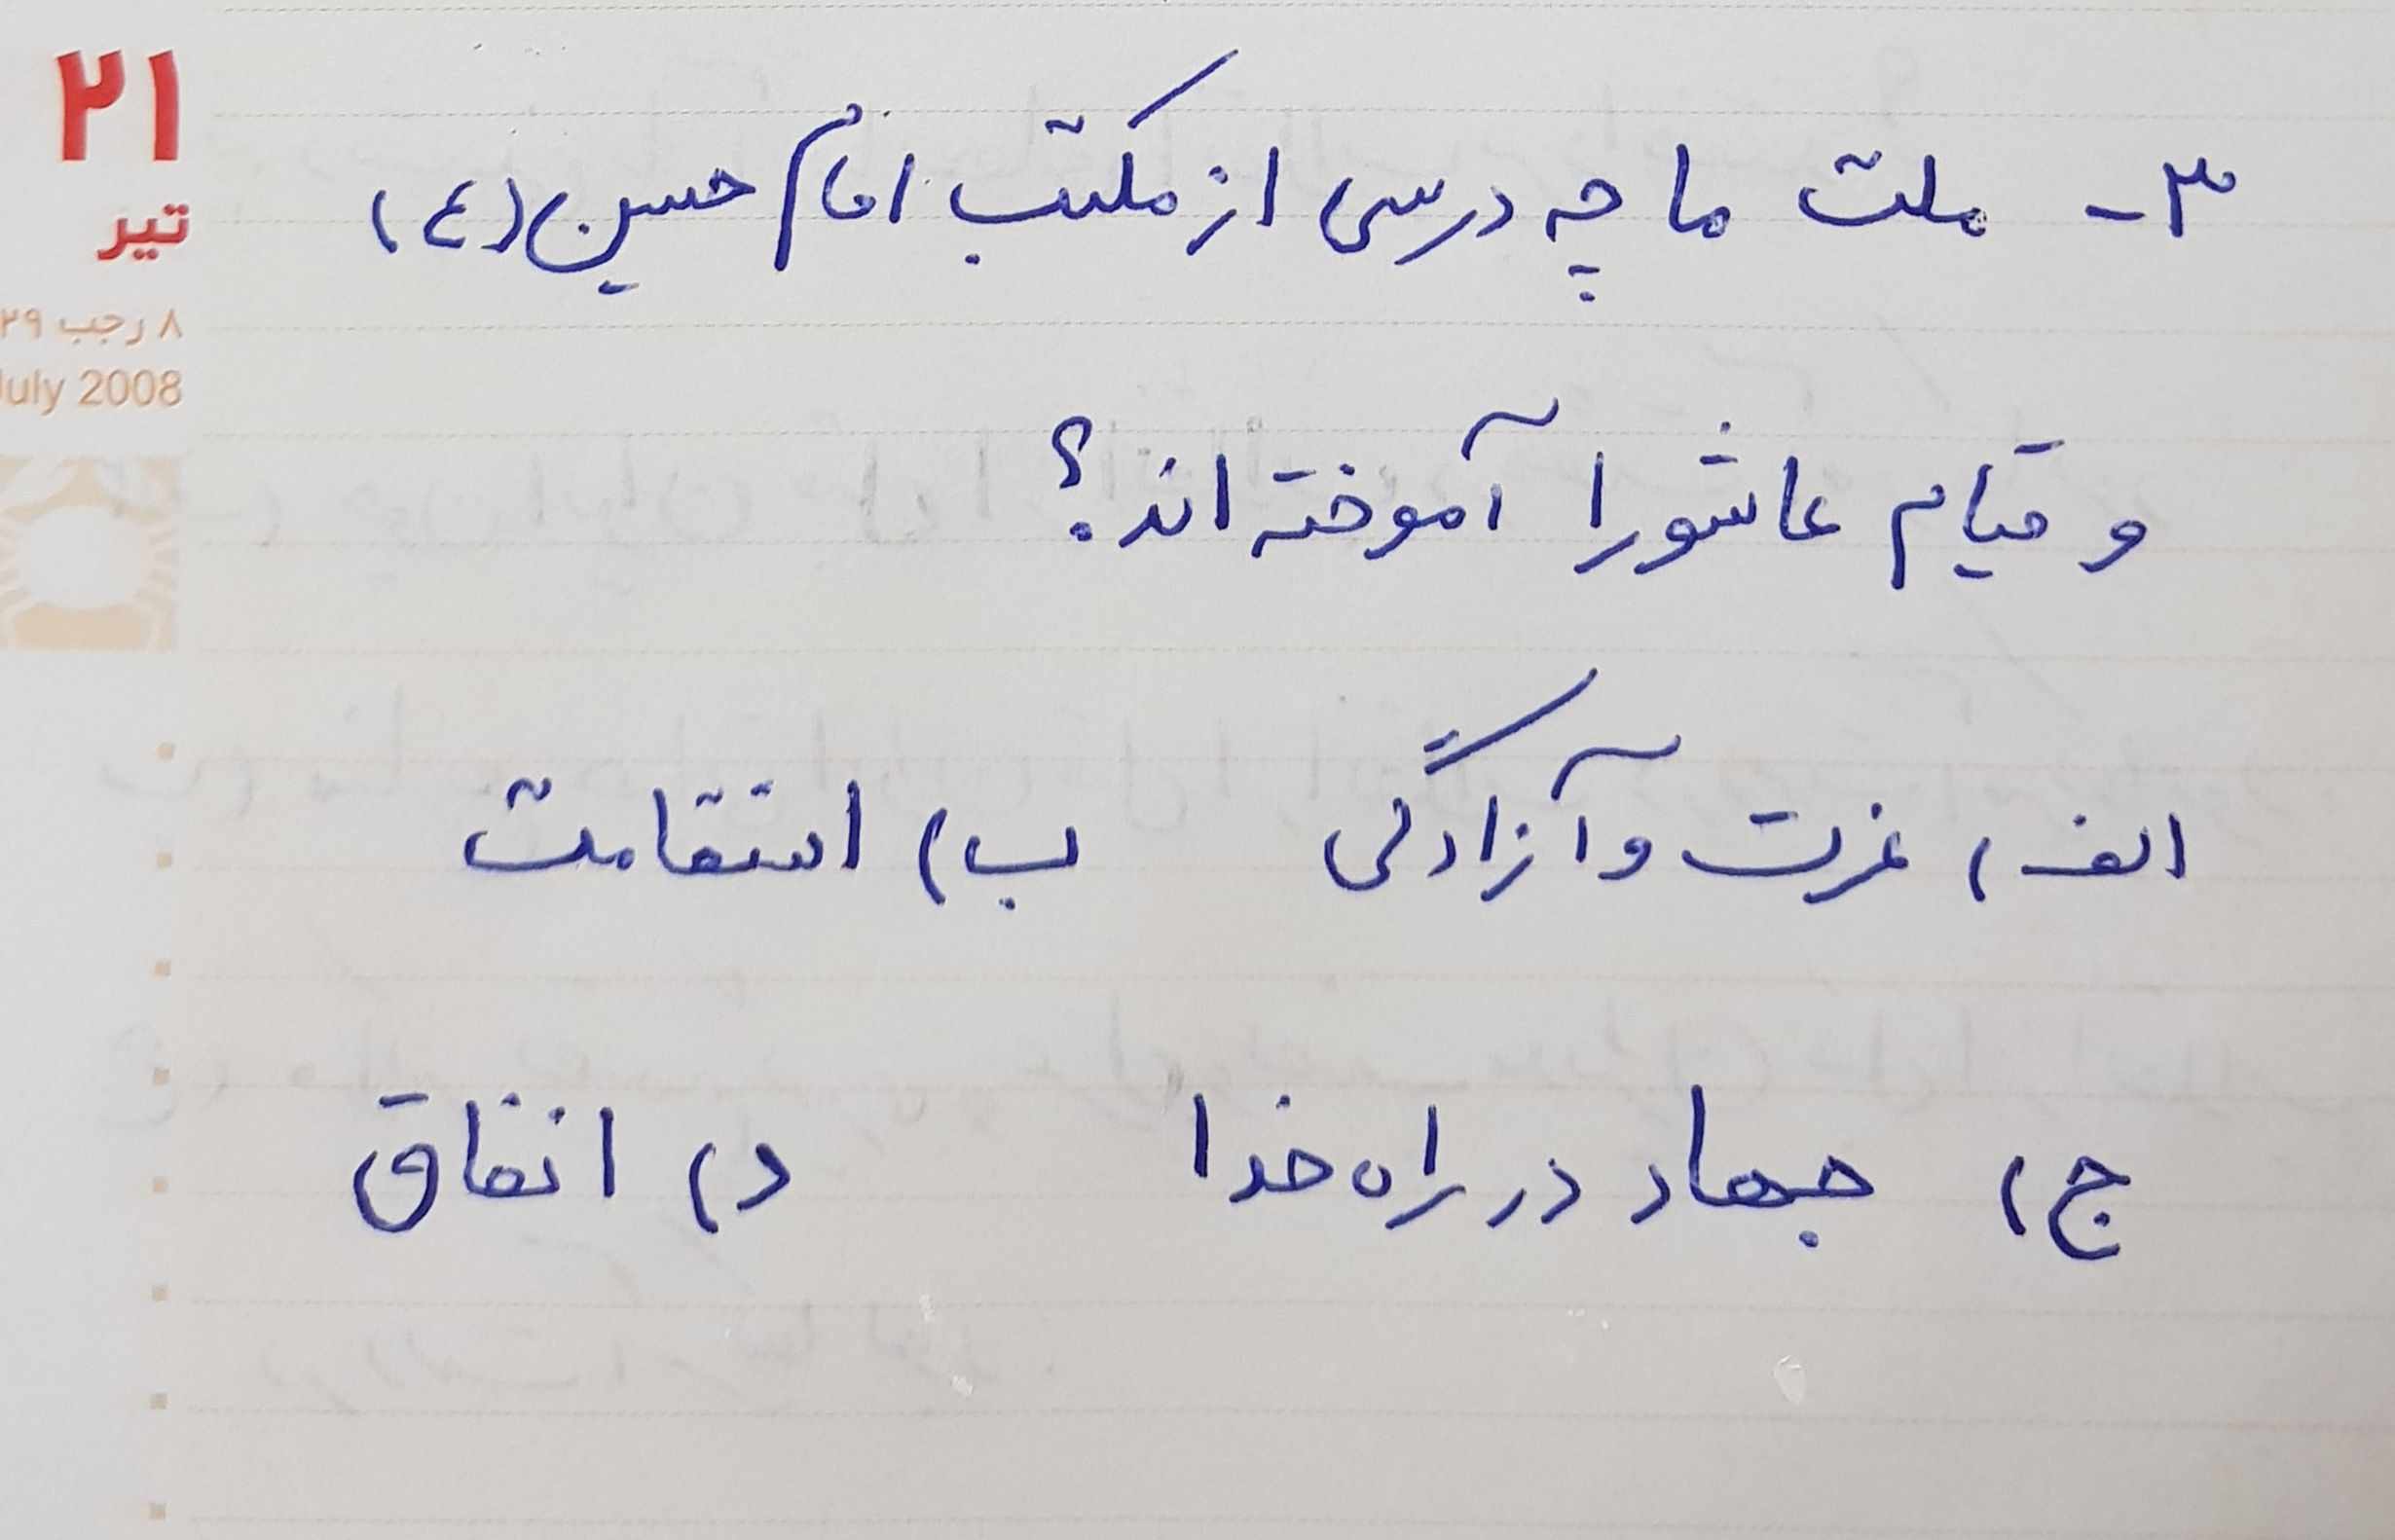 ۲۱
تیر
۸ رجب ۲۹
July 2008
۳- ملت ما چه درسی از مکتب امام حسین (ع)
و قیام عاشورا آموخته اند؟
الف) عزت و آزادگی ب) استقامت
ج) جهاد در راه خدا د) انفاق